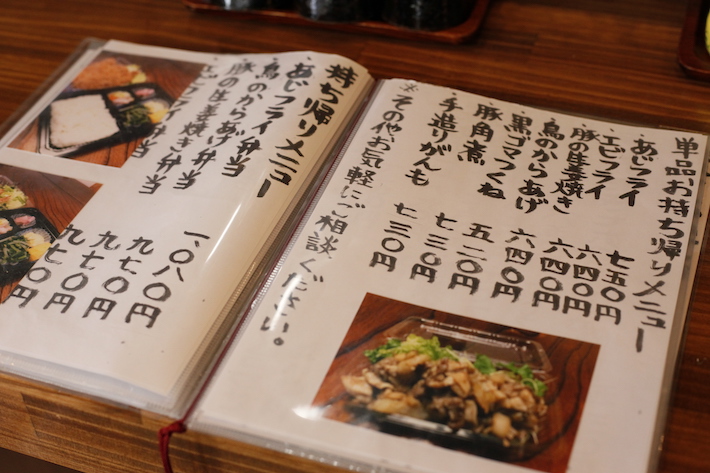 単品お持ち帰りメニュー
あじフライ 七五〇円
エビフライ 六四〇円
豚の生姜焼き 六四〇円
鳥のからあげ 六四〇円
黒ゴマつくね 五二〇円
豚角煮 七三〇円
手造りがんも 七三〇円
※その他、お気軽にご相談ください。
持ち帰りメニュー
あじフライ弁当 一、〇八〇円
鳥のからあげ弁当 九七〇円
豚の生姜焼き弁当 九七〇円
弁当 九七〇円